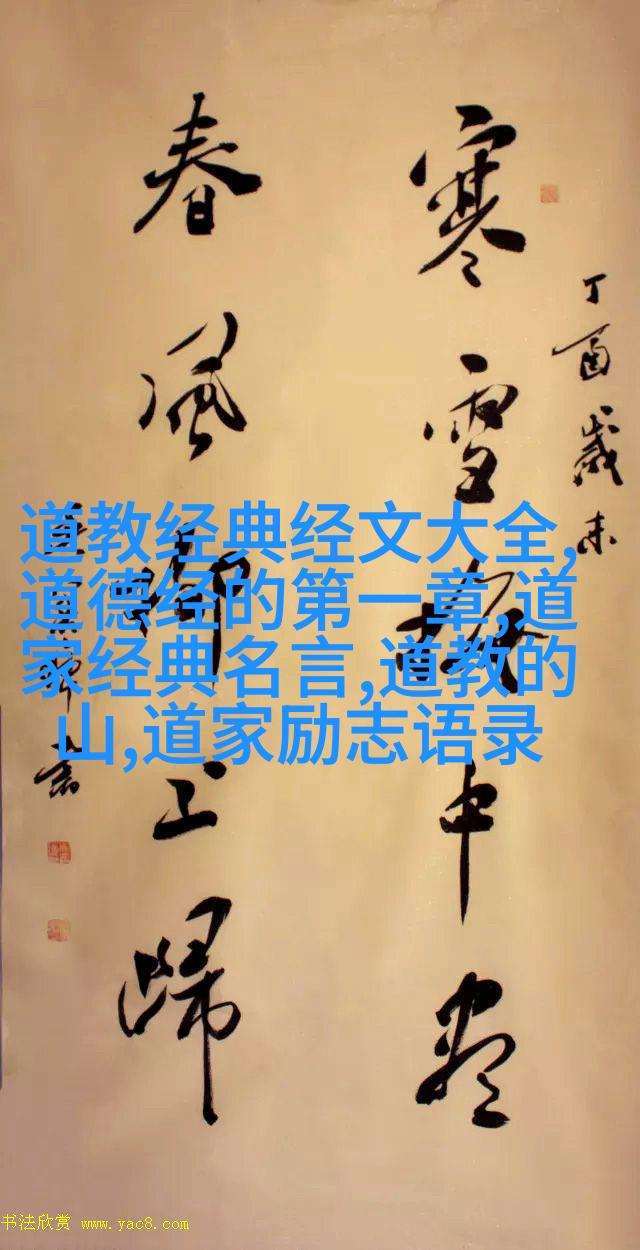 丁酉歲末
寒雪梅中盡
春風柳上歸
道教经典经文大全,
道德经的第一章,道
家经典名言,道教的
山,道家励志语录
书法欣赏 www.yac8.com